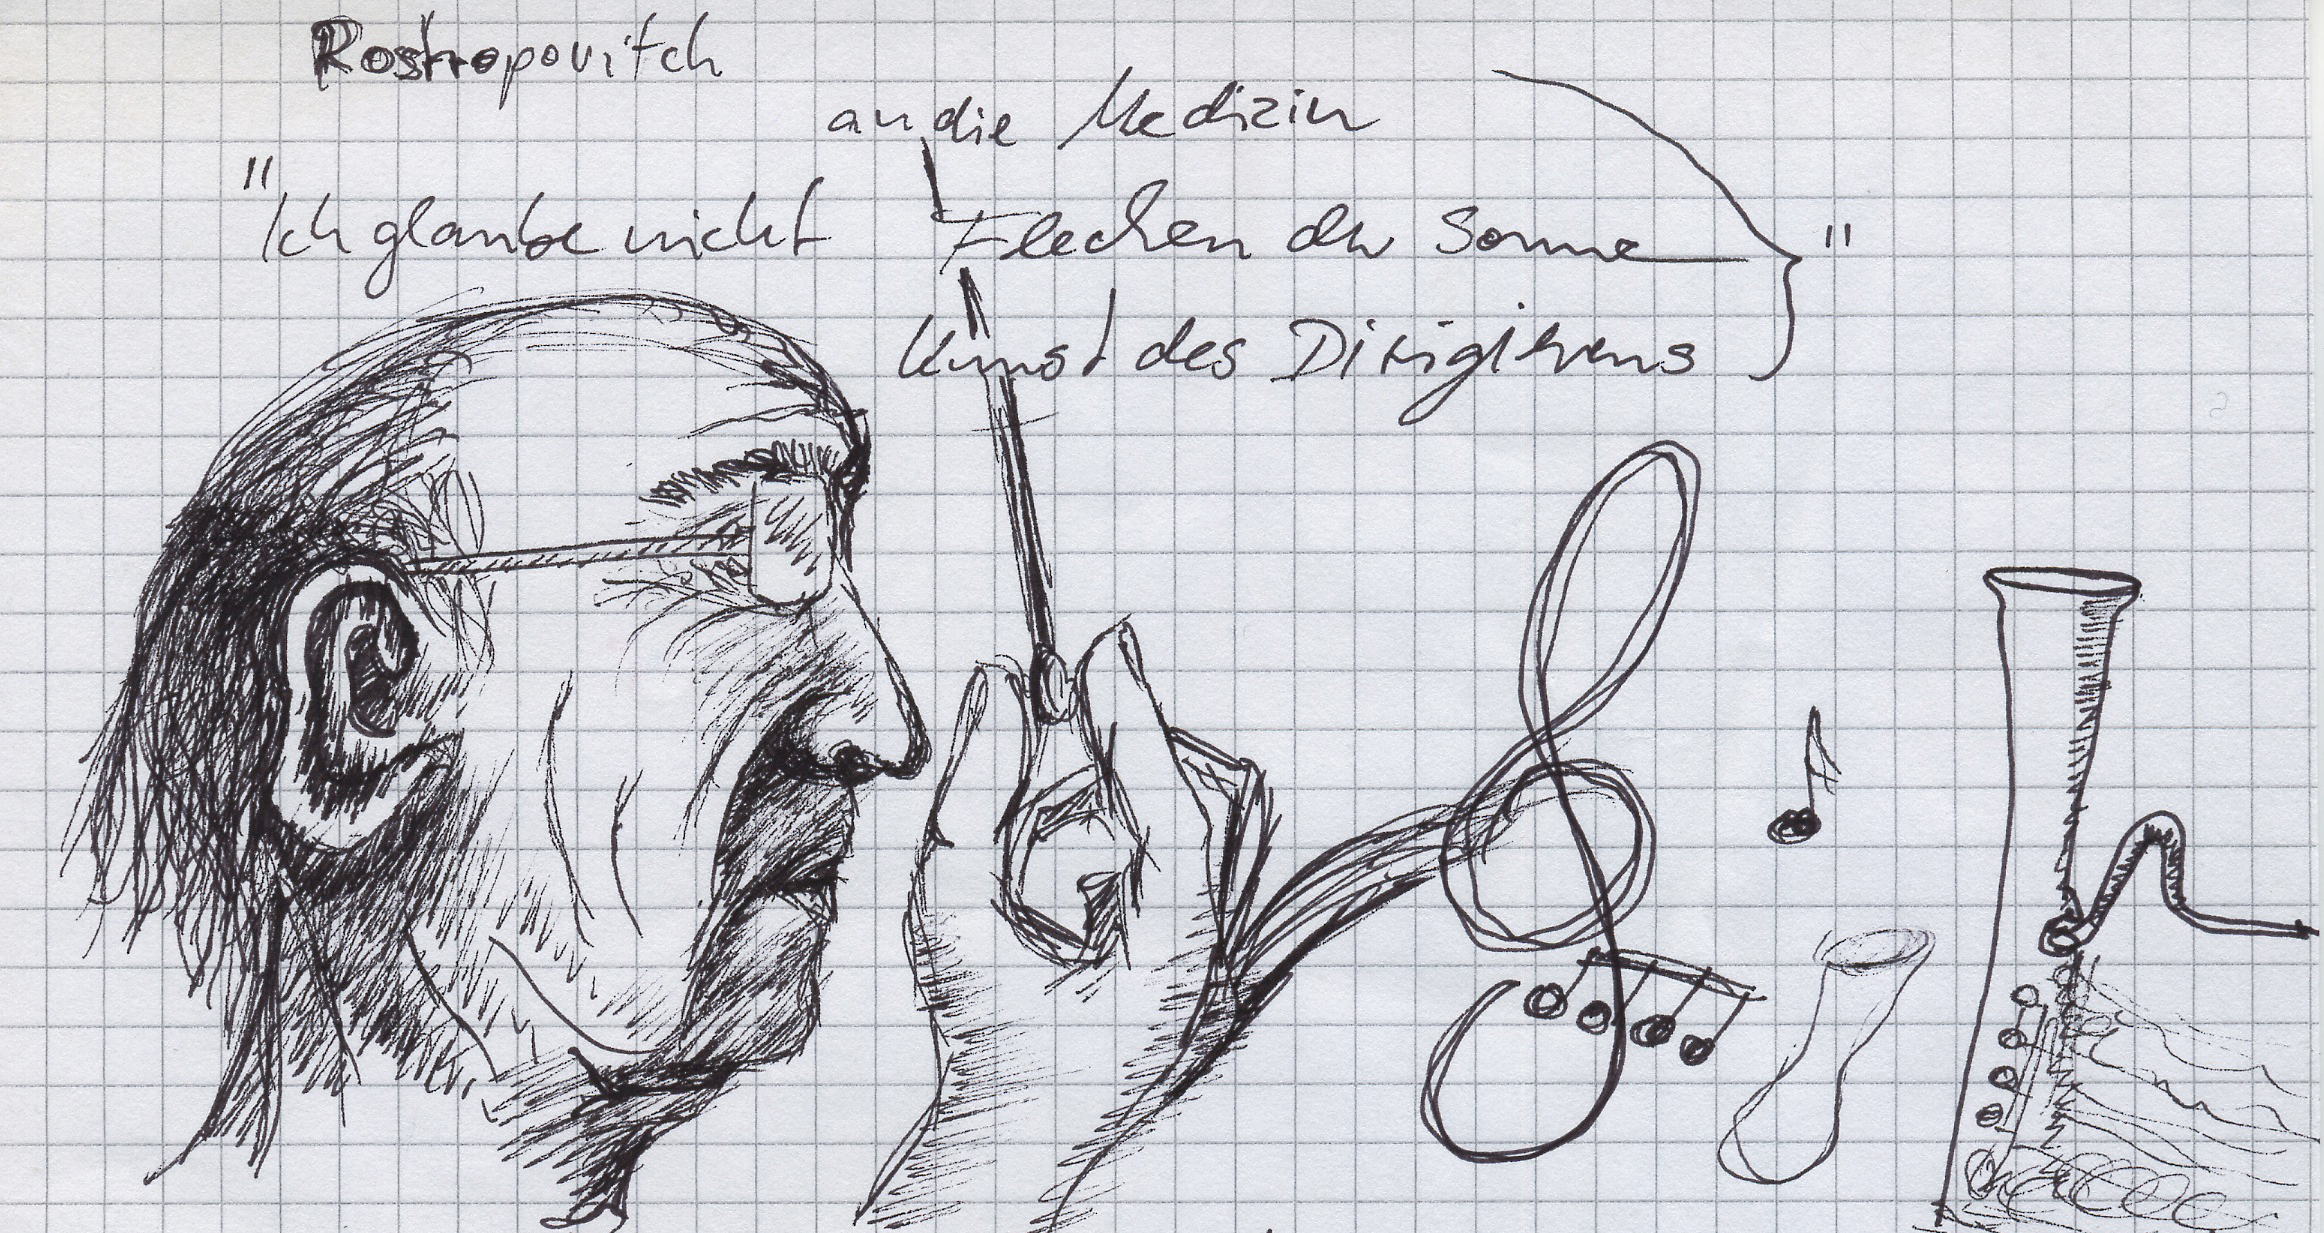 Rostropovitch
an die Medizin
"Ich glaube nicht Flecken der Sonne"
Kunst des Dirigierens